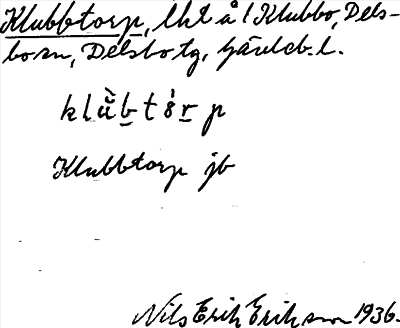 Klubbtorp, lht å 1 Klubbo, Dels-
bo sn, Delsbo tg, Gävleb. l.
klùbtȯrp
Klubbtorp jb
Nils Erik Erikson 1936.